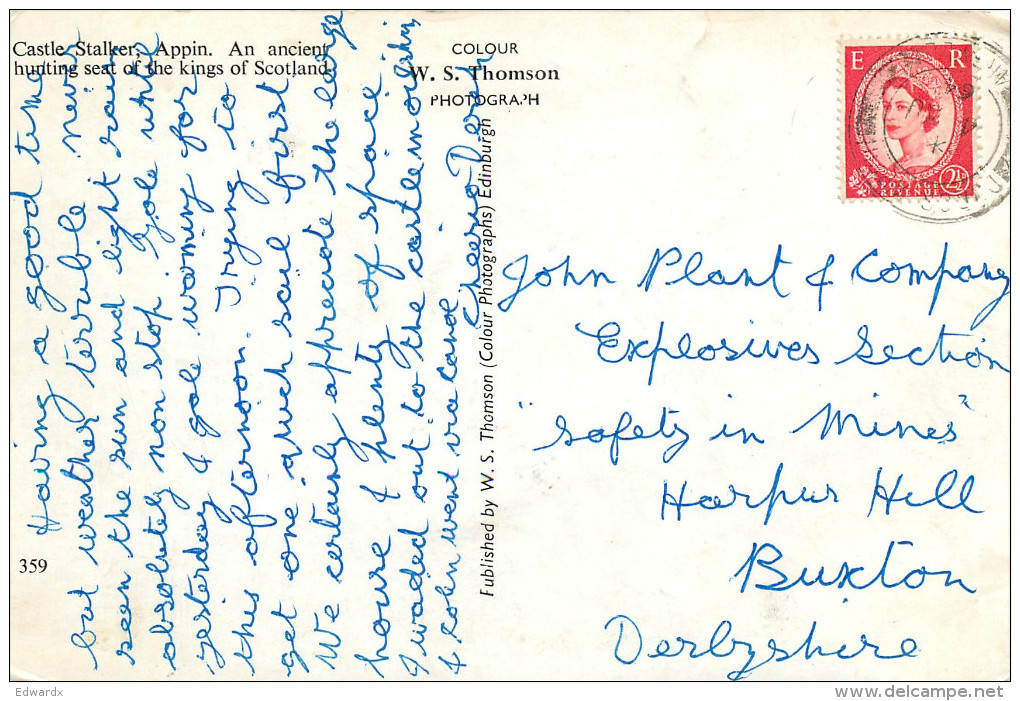 Castle Stalker, Appin. An ancient
hunting seat of the kings of Scotland.
COLOUR
W. S. Thomson
PHOTOGRAPH
E R
POSTAGE
REVENUE
2½
Having a good time
but weather terrible never
seen the sun and light rain
absolutely non stop gale until
yesterday & gale warning for
this afternoon. Trying to
get one quick sail first
We certainly appreciate the large
house & plenty of space.
I waded out to the castle
& Colin went via canoe
Cheerio Derek
359
Published by W. S. Thomson (Colour Photographs) Edinburgh
John Plant & Company
Explosives Section
"Safety in Mines"
Harpur Hill
Buxton
Derbyshire
Edwardx
delcampe.net